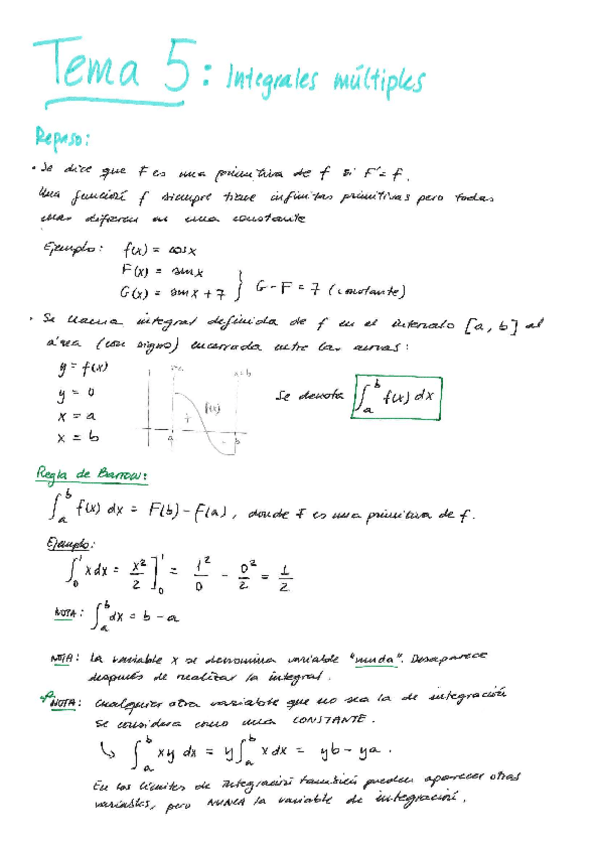 Tema 5: Integrales múltiples
Repaso:
• Se dice que F es una primitiva de f si F' = f.
Una función f siempre tiene infinitas primitivas pero todas
ellas difieren en una constante
Ejemplo: f(x) = cosx
F(x) = senx
G(x) = senx + 7 } G - F = 7 (constante)
• Se llama integral definida de f en el intervalo [a, b] al
área (con signo) encerrada entre las curvas:
y = f(x)
y = 0
x = a
x = b
x=b
f(x)
+
-
a
b
Se denota ∫_a^b f(x) dx
Regla de Barrow:
∫_a^b f(x) dx = F(b) - F(a), donde F es una primitiva de f.
Ejemplo:
∫_0^1 x dx = x²/2 ]_0^1 = 1²/0 - 0²/2 = 1/2
NOTA: ∫_a^b dx = b - a
NOTA: La variable x se denomina variable "muda". Desaparece
después de realizar la integral.
NOTA: Cualquier otra variable que no sea la de integración
se considera como una CONSTANTE.
↳ ∫_a^b xy dx = y∫_a^b x dx = yb - ya.
En los límites de integración también pueden aparecer otras
variables, pero NUNCA la variable de integración.